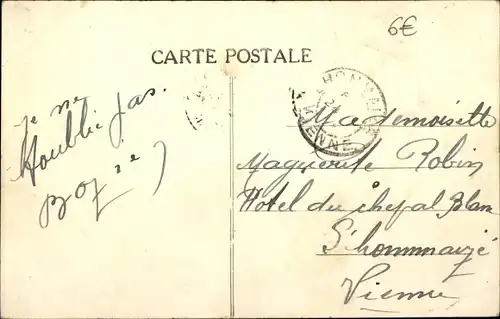 6€
CARTE POSTALE
je ne
t'oublie pas.
HOMMAIZÉ
VIENNE
Mademoiselle
Maguerite Robin
Hotel du cheval Blan
L'hommaizé
Vienne